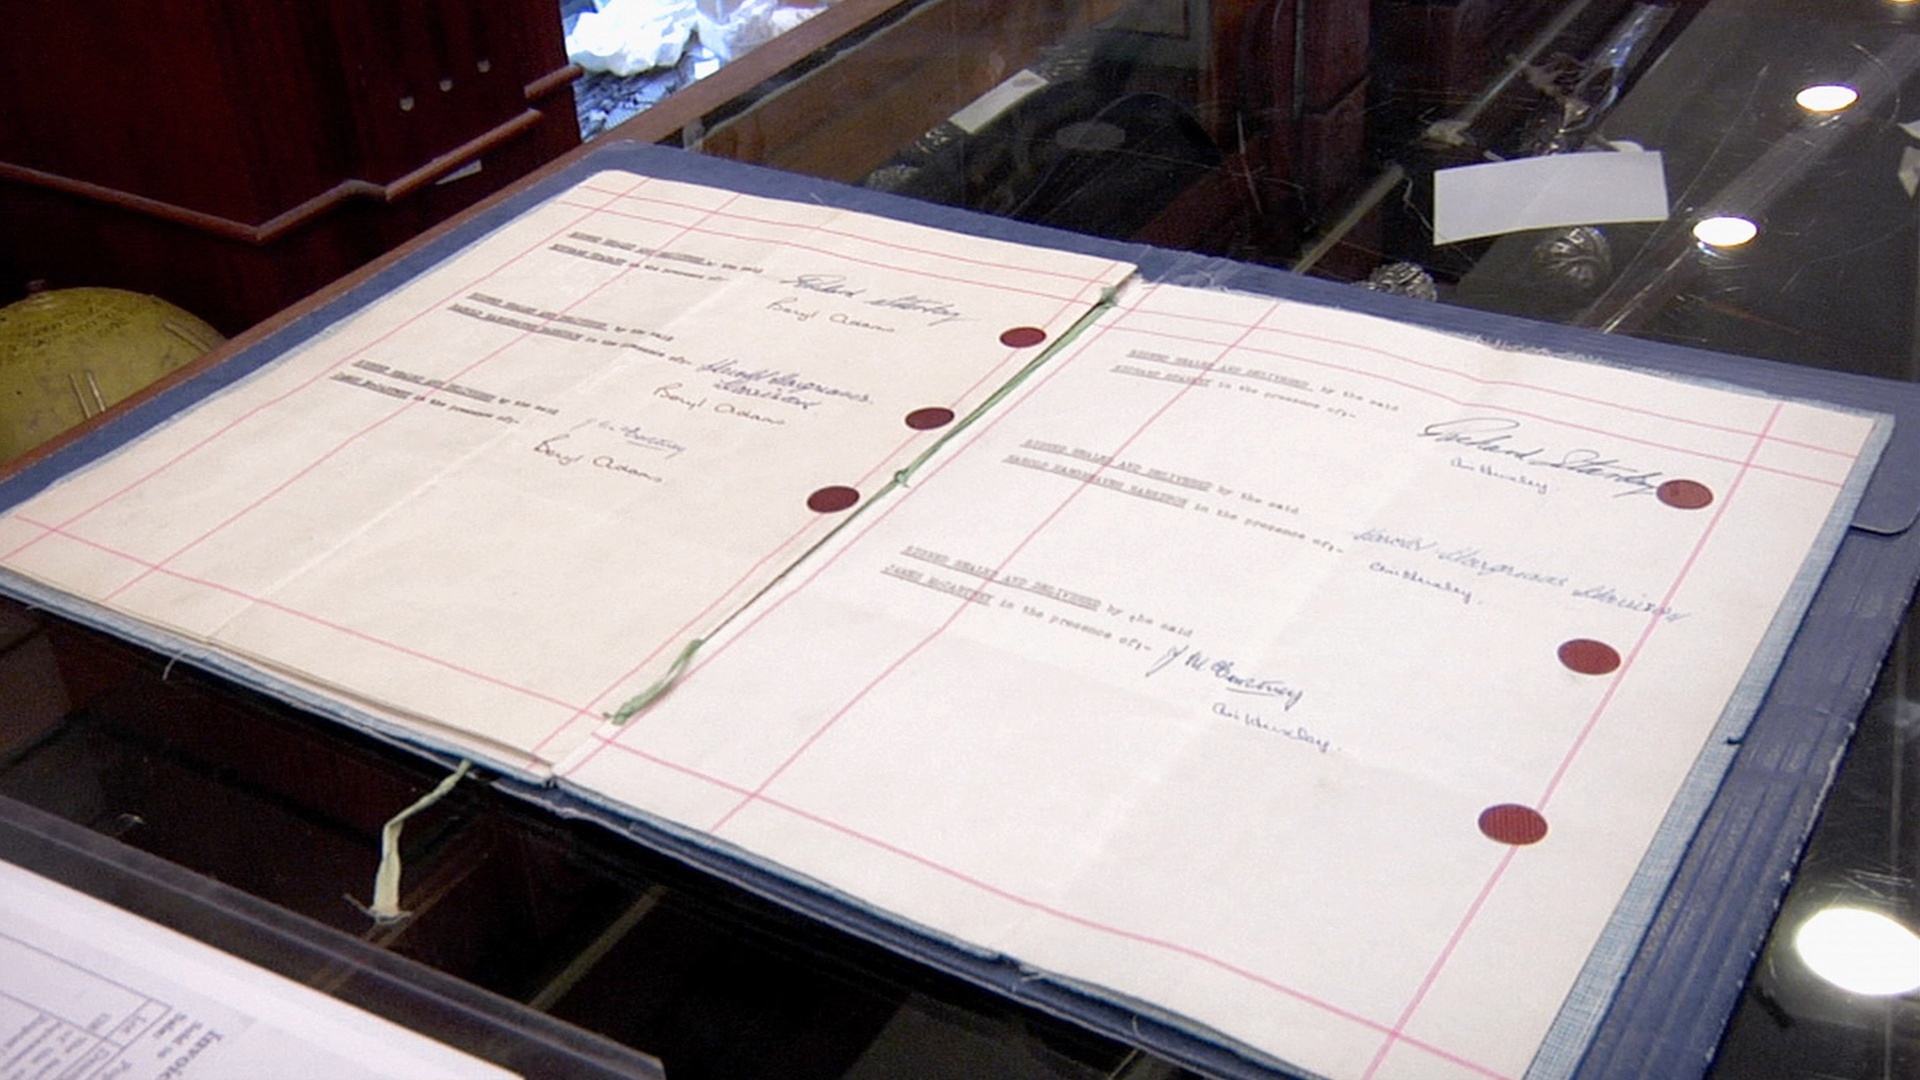 SIGNED SEALED AND DELIVERED by the said
in the presence of:-
Richard Starkey
Beryl Adams
SIGNED SEALED AND DELIVERED by the said
HAROLD HARGREAVES HARRISON in the presence of:-
Harold Hargreaves
Harrison
Beryl Adams
SIGNED SEALED AND DELIVERED by the said
JAMES McCARTNEY in the presence of:-
J McCartney
Beryl Adams
SIGNED SEALED AND DELIVERED by the said
RICHARD STARKEY in the presence of:-
Richard Starkey
SIGNED SEALED AND DELIVERED by the said
HAROLD HARGREAVES HARRISON in the presence of:-
Harold Hargreaves Harrison
SIGNED SEALED AND DELIVERED by the said
JAMES McCARTNEY in the presence of:-
J McCartney